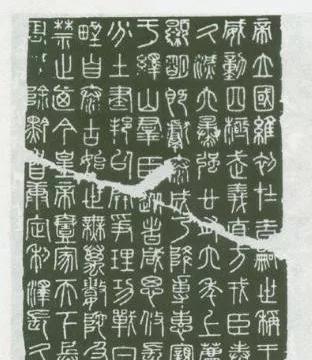 帝立國維初在昔嗣世稱王
威動四極武義直方戎臣奉
久滅六暴強廿有六年上薦
顯明既獻泰成乃降專惠寴
于繹山群臣從者咸思攸長
分土建邦以開爭理功戰日
野自泰古始世無萬數陀及
禁止廼今皇帝壹家天下
害滅除黔首康定利澤長久